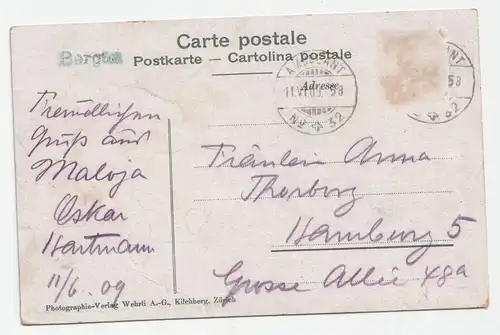 Carte postale
Postkarte — Cartolina postale
AMBULANT
11.VI.09. 58
No 32
58
32
Adresse
Freundlichen
Gruß aus
Maloja
Oskar
Hartmann
11/6. 09
Fräulein Anna
Thorborg
Hamburg 5
Grosse Allée 48a
Photographie-Verlag Wehrli A.-G., Kilchberg, Zürich